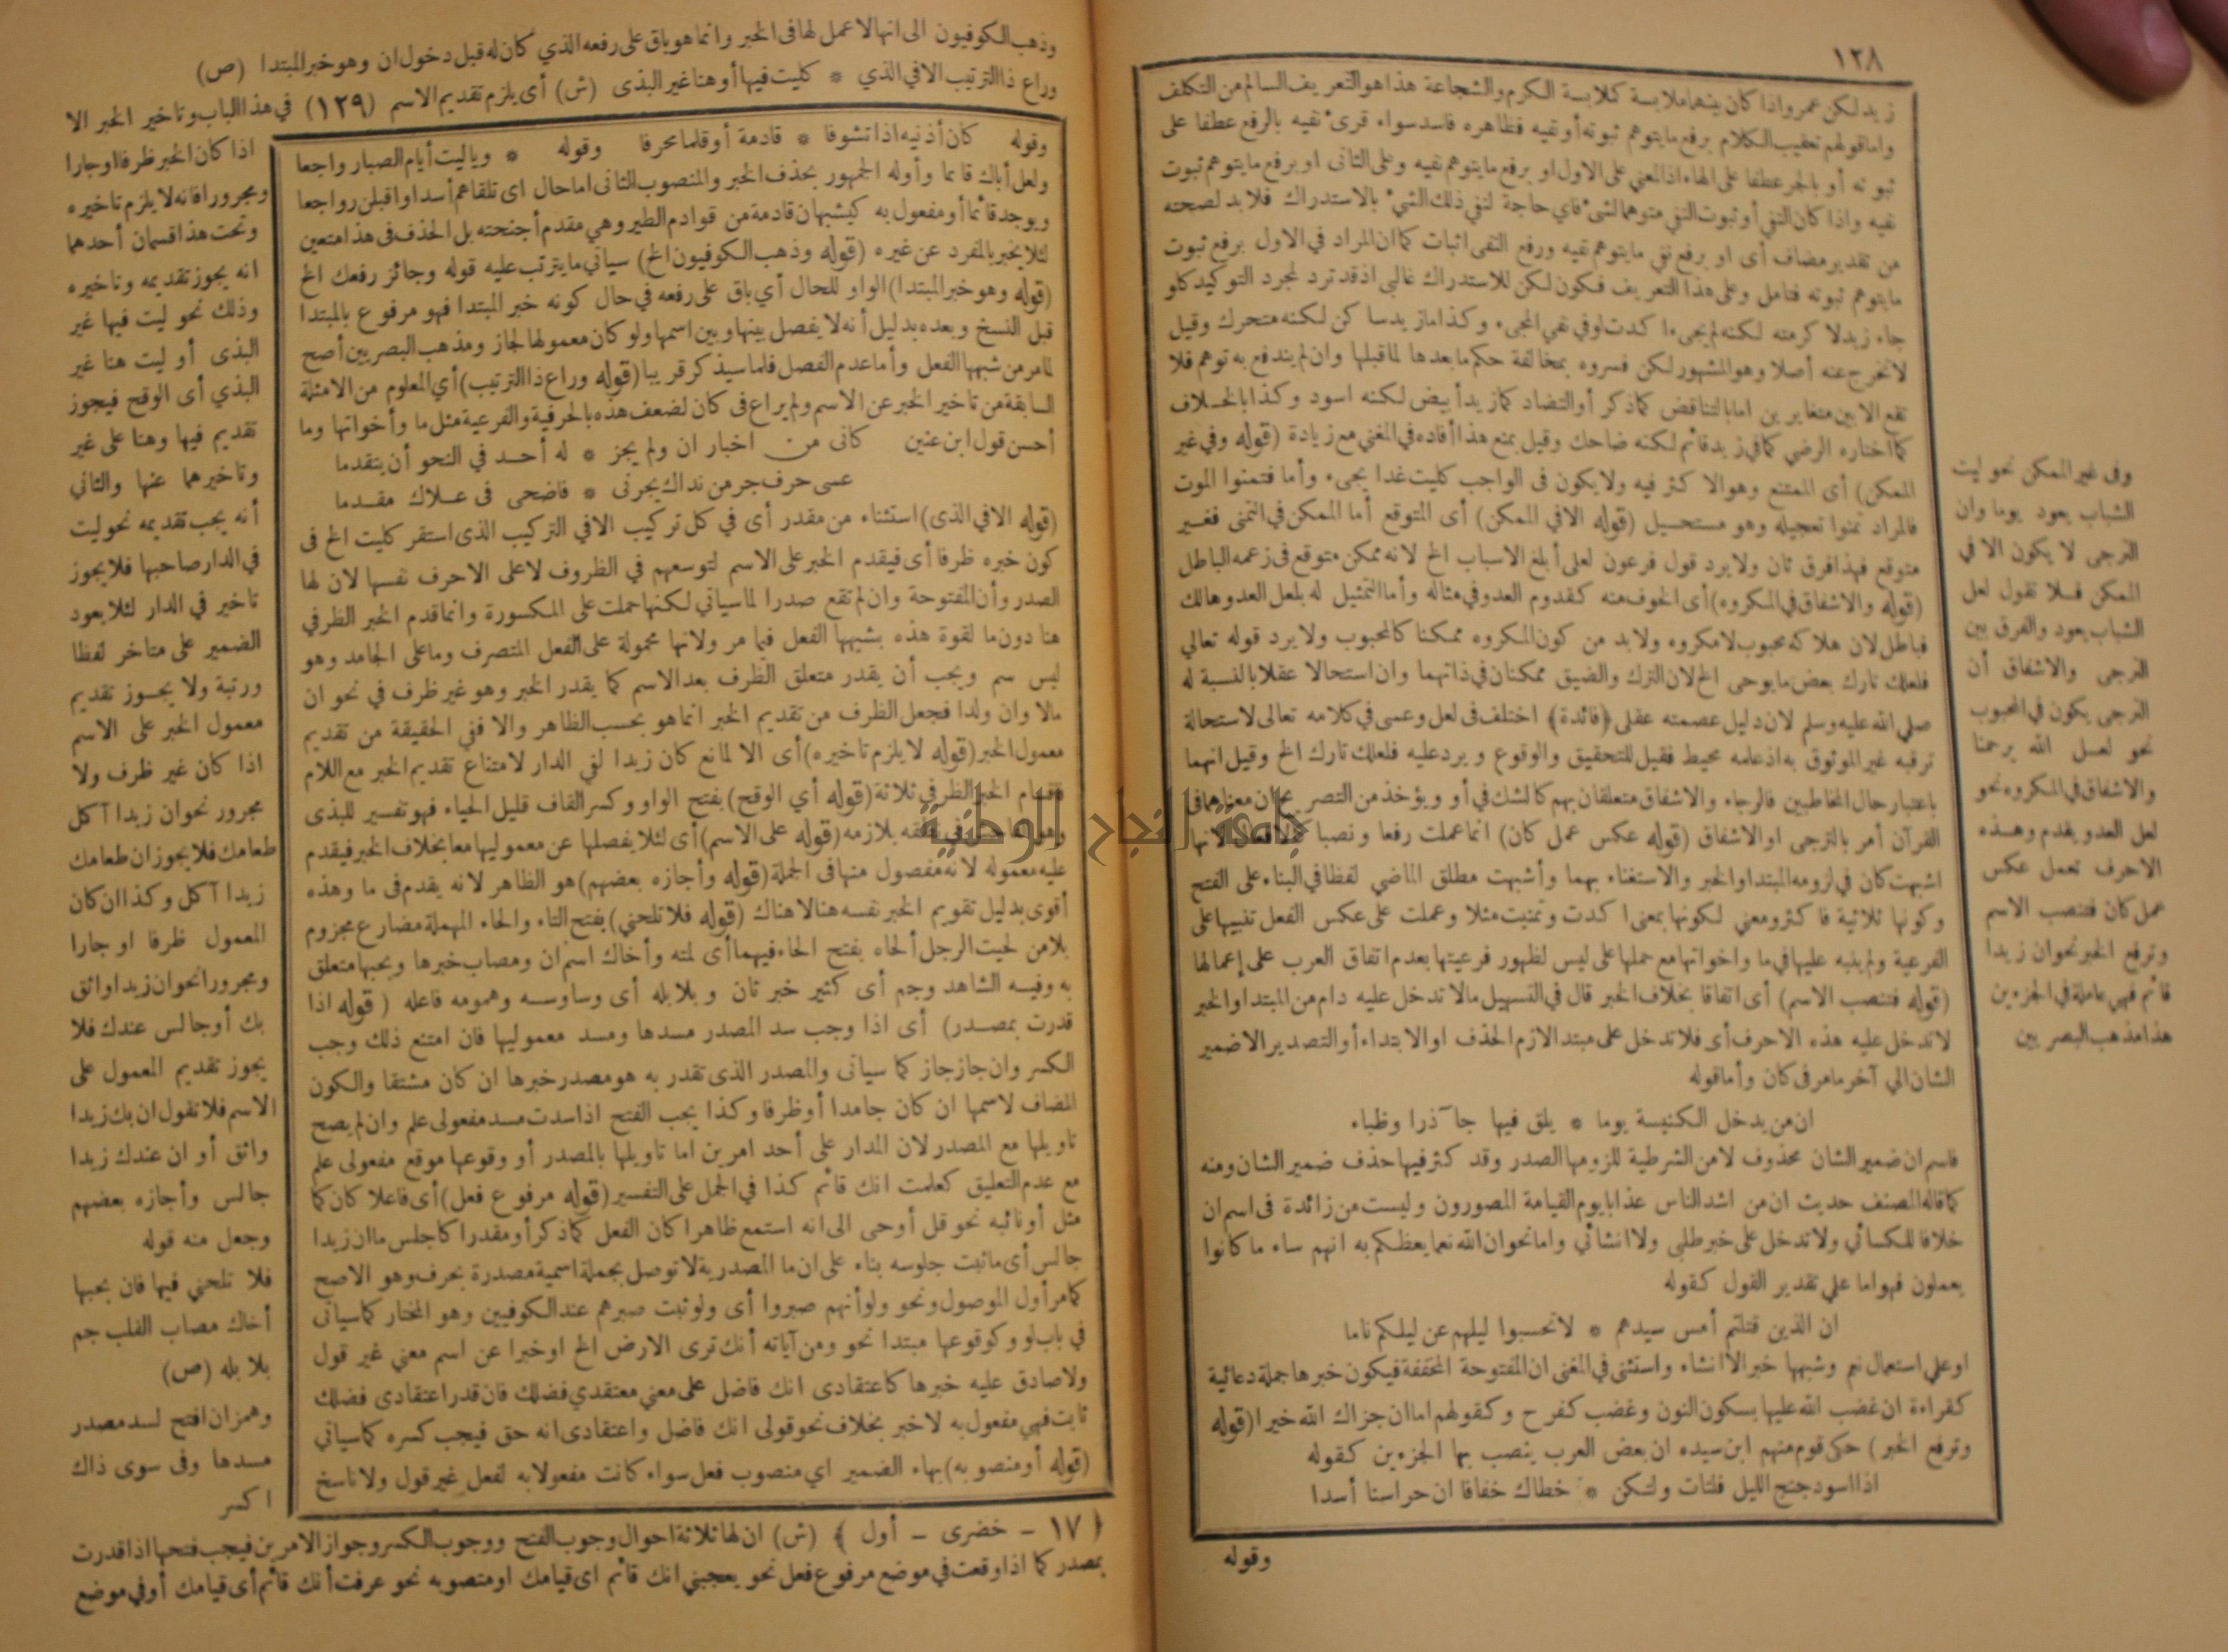 ١٢٨
زيد لكن عمرو اذا كان بينهما ملابسة كملابسة الكرم والشجاعة هذا هو التعريف السالم من التكلف
واما قولهم تعقيب الكلام برفع ما يتوهم ثبوته أو نفيه فظاهره فاسد سواء قرئ نفيه بالرفع عطفا على
ثبوته أو بالجر عطفا على الهاء اذ المعني على الاول او برفع ما يتوهم نفيه وعلى الثانى او برفع ما يتوهم ثبوت
نفيه واذا كان النفي أو ثبوت النفي متوهما لشئ فاي حاجة لنفي ذلك الشئ بالاستدراك فلا بد لصحته
من تقدير مضاف أى او برفع نفي ما يتوهم نفيه ورفع النفى اثبات كما ان المراد في الاول برفع ثبوت
ما يتوهم ثبوته فتامل وعلى هذا التعريف فكون لكن للاستدراك غالبى اذ قد ترد لمجرد التوكيد كلو
جاء زيد لا كرمته لكنه لم يجىء ا كدت لو في نفى المجىء وكذا ما زيد ساكن لكنه متحرك وقيل
لا تخرج عنه أصلا وهو المشهور لكن فسروه بمخالفة حكم ما بعدها لما قبلها وان لم يندفع به توهم فلا
تقع الا بين متغايرين اما بالتناقض كما ذكر أو التضاد كما زيد أبيض لكنه اسود وكذا بالخلاف
كما اختاره الرضي كما في زيد قائم لكنه ضاحك وقيل بمنع هذا أفاده في المغني مع زيادة (قوله وفي غير
الممكن) أى الممتنع وهو الا كثر فيه ولا يكون فى الواجب كليت غدا يجىء وأما فتمنوا الموت
فالمراد تمنوا تعجيله وهو مستحيل (قوله الا في الممكن) أى المتوقع أما الممكن في التمنى فغير
متوقع فهذا فرق ثان ولا يرد قول فرعون لعلى أبلغ الاسباب الخ لانه ممكن متوقع فى زعمه الباطل
(قوله والاشفاق في المكروه) أى الخوف منه كقدوم العدو في مثاله وأما التمثيل له بلعل العدو هالك
فباطل لان هلاكه محبوب لا مكروه ولا بد من كون المكروه ممكنا كالمحبوب ولا يرد قوله تعالي
فلعلك تارك بعض ما يوحى الخ لان الترك والضيق ممكنان في ذاتهما وان استحالا عقلا بالنسبة له
صلي الله عليه وسلم لان دليل عصمته عقلى (فائدة) اختلف فى لعل وعسى في كلامه تعالى لاستحالة
ترقبه غير الموثوق به اذ علمه محيط فقيل للتحقيق والوقوع ويرد عليه فلعلك تارك الخ وقيل انهما
باعتبار حال المخاطبين فالرجاء والاشفاق متعلقان بهم كالشك في أو ويؤخذ من
القرآن أمر بالترجى او الاشفاق (قوله عكس عمل كان) انما عملت رفعا ونصبا
اشبهت كان في لزومه المبتدا والخبر والاستغناء بهما وأشبهت مطلق الماضي لفظا في البناء على الفتح
وكونها ثلاثية فا كثر ومعني لكونها بمعنى ا كدت وتمنيت مثلا وعملت على عكس الفعل تنبيها على
الفرعية ولم ينبه عليها في ما واخواتها مع حملها على ليس لظهور فرعيتها بعدم اتفاق العرب على إعمالها
(قوله فتنصب الاسم) أى اتفاقا بخلاف الخبر قال في التسهيل ما لا تدخل عليه دام من المبتدا والخبر
لا تدخل عليه هذه الاحرف أى فلا تدخل على مبتدا لازم الحذف او الابتداء أو التصدير الا ضمير
الشان الي آخر ما مر فى كان وأما قوله
ان من يدخل الكنيسة يوما * يلق فيها جآذرا وظباء
فاسم ان ضمير الشان محذوف لا من الشرطية للزومها الصدر وقد كثر فيها حذف ضمير الشان ومنه
كما قاله المصنف حديث ان من اشد الناس عذابا يوم القيامة المصورون وليست من زائدة فى اسم ان
خلافا للكسائي ولا تدخل على خبر طلبى ولا انشائي واما نحو ان الله نعما يعظكم به انهم ساء ما كانوا
يعملون فهو اما علي تقدير القول كقوله
ان الذين قتلتم أمس سيدهم * لا تحسبوا ليلهم عن ليلكم ناما
او علي استعمال نعم وشبهها خبرا لا انشاء واستثنى في المغنى ان المفتوحة المخففة فيكون خبرها جملة دعائية
كقراءة ان غضب الله عليها بسكون النون وغضب كفرح وكقولهم اما ان جزاك الله خيرا (قوله
وترفع الخبر) حكى قوم منهم ابن سيده ان بعض العرب ينصب بها الجزءين كقوله
اذا اسود جنح الليل فلتات ولتكن * خطاك خفافا ان حراسنا أسدا
وقوله
وفى غير الممكن نحو ليت
الشباب يعود يوما وان
الترجى لا يكون الا في
الممكن فلا تقول لعل
الشباب يعود والفرق بين
الترجى والاشفاق أن
الترجى يكون في المحبوب
نحو لعل الله يرحمنا
والاشفاق في المكروه نحو
لعل العدو يقدم وهذه
الاحرف تعمل عكس
عمل كان فتنصب الاسم
وترفع الخبر نحو ان زيدا
قائم فهي عاملة في الجزءين
هذا مذهب البصريين
وذهب الكوفيون الى انها لا عمل لها فى الخبر وانما هو باق على رفعه الذي كان له قبل دخول ان وهو خبر المبتدا (ص)
وراع ذا الترتيب الا في الذي * كليت فيها أو هنا غير البذى (ش) أى يلزم تقديم الاسم (١٢٩) في هذا الباب وتاخير الخبر الا
اذا كان الخبر ظرفا او جارا
ومجرورا فانه لا يلزم تاخيره
وتحت هذا قسمان أحدهما
انه يجوز تقديمه وتاخيره
وذلك نحو ليت فيها غير
البذى أو ليت هنا غير
البذي أى الوقح فيجوز
تقديم فيها وهنا على غير
وتاخيرهما عنها والثاني
أنه يجب تقديمه نحو ليت
في الدار صاحبها فلا يجوز
تاخير في الدار لئلا يعود
الضمير على متاخر لفظا
ورتبة ولا يجوز تقديم
معمول الخبر على الاسم
اذا كان غير ظرف ولا
مجرور نحو ان زيدا آكل
طعامك فلا يجوز ان طعامك
زيدا آكل وكذا ان كان
المعمول ظرفا او جارا
ومجرورا نحو ان زيدا واثق
بك أو جالس عندك فلا
يجوز تقديم المعمول على
الاسم فلا تقول ان بك زيدا
واثق أو ان عندك زيدا
جالس وأجازه بعضهم
وجعل منه قوله
فلا تلحني فيها فان بحبها
أخاك مصاب القلب جم
بلابله (ص)
وهمز ان افتح لسد مصدر
مسدها وفى سوى ذاك
اكسر
وقوله كان أذنيه اذا تشوفا * قادمة أو قلما محرفا وقوله * ويا ليت أيام الصبا رواجعا
ولعل أباك قائما وأوله الجمهور بحذف الخبر والمنصوب الثانى اما حال اى تلقاهم أسدا او اقبلن رواجعا
ويوجد قائما أو مفعول به كيشبهان قادمة من قوادم الطير وهي مقدم أجنحته بل الحذف فى هذا متعين
لئلا يخبر بالمفرد عن غيره (قوله وذهب الكوفيون الخ) سياتي ما يترتب عليه قوله وجائز رفعك الخ
(قوله وهو خبر المبتدا) الواو للحال أي باق على رفعه في حال كونه خبر المبتدا فهو مرفوع بالمبتدا
قبل النسخ وبعده بدليل أنه لا يفصل بينها وبين اسمها ولو كان معمولها لجاز ومذهب البصريين أصح
لما مر من شبهها الفعل وأما عدم الفصل فلما سيذكر قريبا (قوله وراع ذا الترتيب) أي المعلوم من الامثلة
السابقة من تاخير الخبر عن الاسم ولم يراع فى كان لضعف هذه بالحرفية والفرعية مثل ما وأخواتها وما
أحسن قول ابن عنين كانى من اخبار ان ولم يجز * له أحد في النحو أن يتقدما
عسى حرف جر من نداك يجرنى * فاضحى فى علاك مقدما
(قوله الا في الذى) استثناء من مقدر أى في كل تركيب الا في التركيب الذى استقر كليت الخ فى
كون خبره ظرفا أى فيقدم الخبر على الاسم لتوسعهم في الظروف لا على الاحرف نفسها لان لها
الصدر وأن المفتوحة وان لم تقع صدرا لما سياتي لكنها حملت على المكسورة وانما قدم الخبر الظرفي
هنا دون ما لقوة هذه بشبهها الفعل فيما مر ولانها محمولة على الفعل المتصرف وما على الجامد وهو
ليس سم ويجب أن يقدر متعلق الظرف بعد الاسم كما يقدر الخبر وهو غير ظرف في نحو ان
مالا وان ولدا فجعل الظرف من تقديم الخبر انما هو بحسب الظاهر والا ففي الحقيقة من تقديم
معمول الخبر (قوله لا يلزم تاخيره) أى الا لمانع كان زيدا لفي الدار لامتناع تقديم الخبر مع اللام
فاقسام الخبر الظرفي ثلاثة (قوله أي الوقح) بفتح الواو وكسر القاف قليل الحياء فهو تفسير للبذى
بلازمه (قوله على الاسم) أى لئلا يفصلها عن معموليها معا بخلاف الخبر فيقدم
عليه معموله لانه مفصول منها فى الجملة (قوله وأجازه بعضهم) هو الظاهر لانه يقدم فى ما وهذه
أقوى بدليل تقويم الخبر نفسه هنا لا هناك (قوله فلا تلحني) بفتح التاء والحاء المهملة مضارع مجزوم
بلا من لحيت الرجل ألحاه بفتح الحاء فيهما أى لمته وأخاك اسم ان ومصاب خبرها وبحبها متعلق
به وفيه الشاهد وجم أى كثير خبر ثان وبلابله أى وساوسه وهمومه فاعله (قوله اذا
قدرت بمصدر) أى اذا وجب سد المصدر مسدها ومسد معموليها فان امتنع ذلك وجب
الكسر وان جاز جاز كما سياتى والمصدر الذى تقدر به هو مصدر خبرها ان كان مشتقا والكون
المضاف لاسمها ان كان جامدا أو ظرفا وكذا يجب الفتح اذا سدت مسد مفعولى علم وان لم يصح
تاويلها مع المصدر لان المدار على أحد امرين اما تاويلها بالمصدر أو وقوعها موقع مفعولى علم
مع عدم التعليق كعلمت انك قائم كذا في الجمل على التفسير (قوله مرفوع فعل) أى فاعلا كان كما
مثل أو نائبه نحو قل أوحى الى انه استمع ظاهرا كان الفعل كما ذكر أو مقدرا كاجلس ما ان زيدا
جالس أى ما ثبت جلوسه بناء على ان ما المصدرية لا توصل بجملة اسمية مصدرة بحرف وهو الاصح
كما مر أول الموصول ونحو ولو أنهم صبروا أى ولو ثبت صبرهم عند الكوفيين وهو المختار كما سياتى
في باب لو وكوقوعها مبتدا نحو ومن آياته أنك ترى الارض الخ او خبرا عن اسم معني غير قول
ولا صادق عليه خبرها كاعتقادى انك فاضل على معني معتقدي فضلك فان قدر اعتقادى فضلك
ثابت فهي مفعول به لا خبر بخلاف نحو قولى انك فاضل واعتقادى انه حق فيجب كسره كما سياتي
(قوله أو منصوبه) بهاء الضمير اي منصوب فعل سواء كانت مفعولا به لفعل غير قول ولا ناسخ
﴿١٧ - خضرى - أول﴾ (ش) ان لها ثلاثة احوال وجوب الفتح ووجوب الكسر وجواز الامرين فيجب فتحها اذا قدرت
بمصدر كما اذا وقعت في موضع مرفوع فعل نحو يعجبني انك قائم اى قيامك او منصوبه نحو عرفت أنك قائم أى قيامك أو في موضع
جامعة النجاح الوطنية